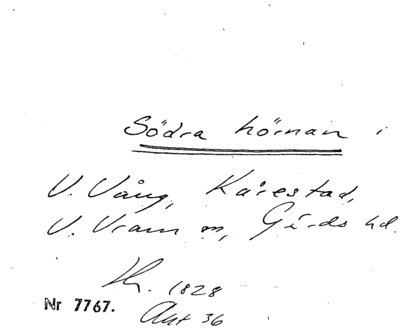 Södra hörnan i
V. Vång, Kårestad,
V. Vram sn, Gärds hd.
Kr. 1828
Nr 7767.
Akt 36